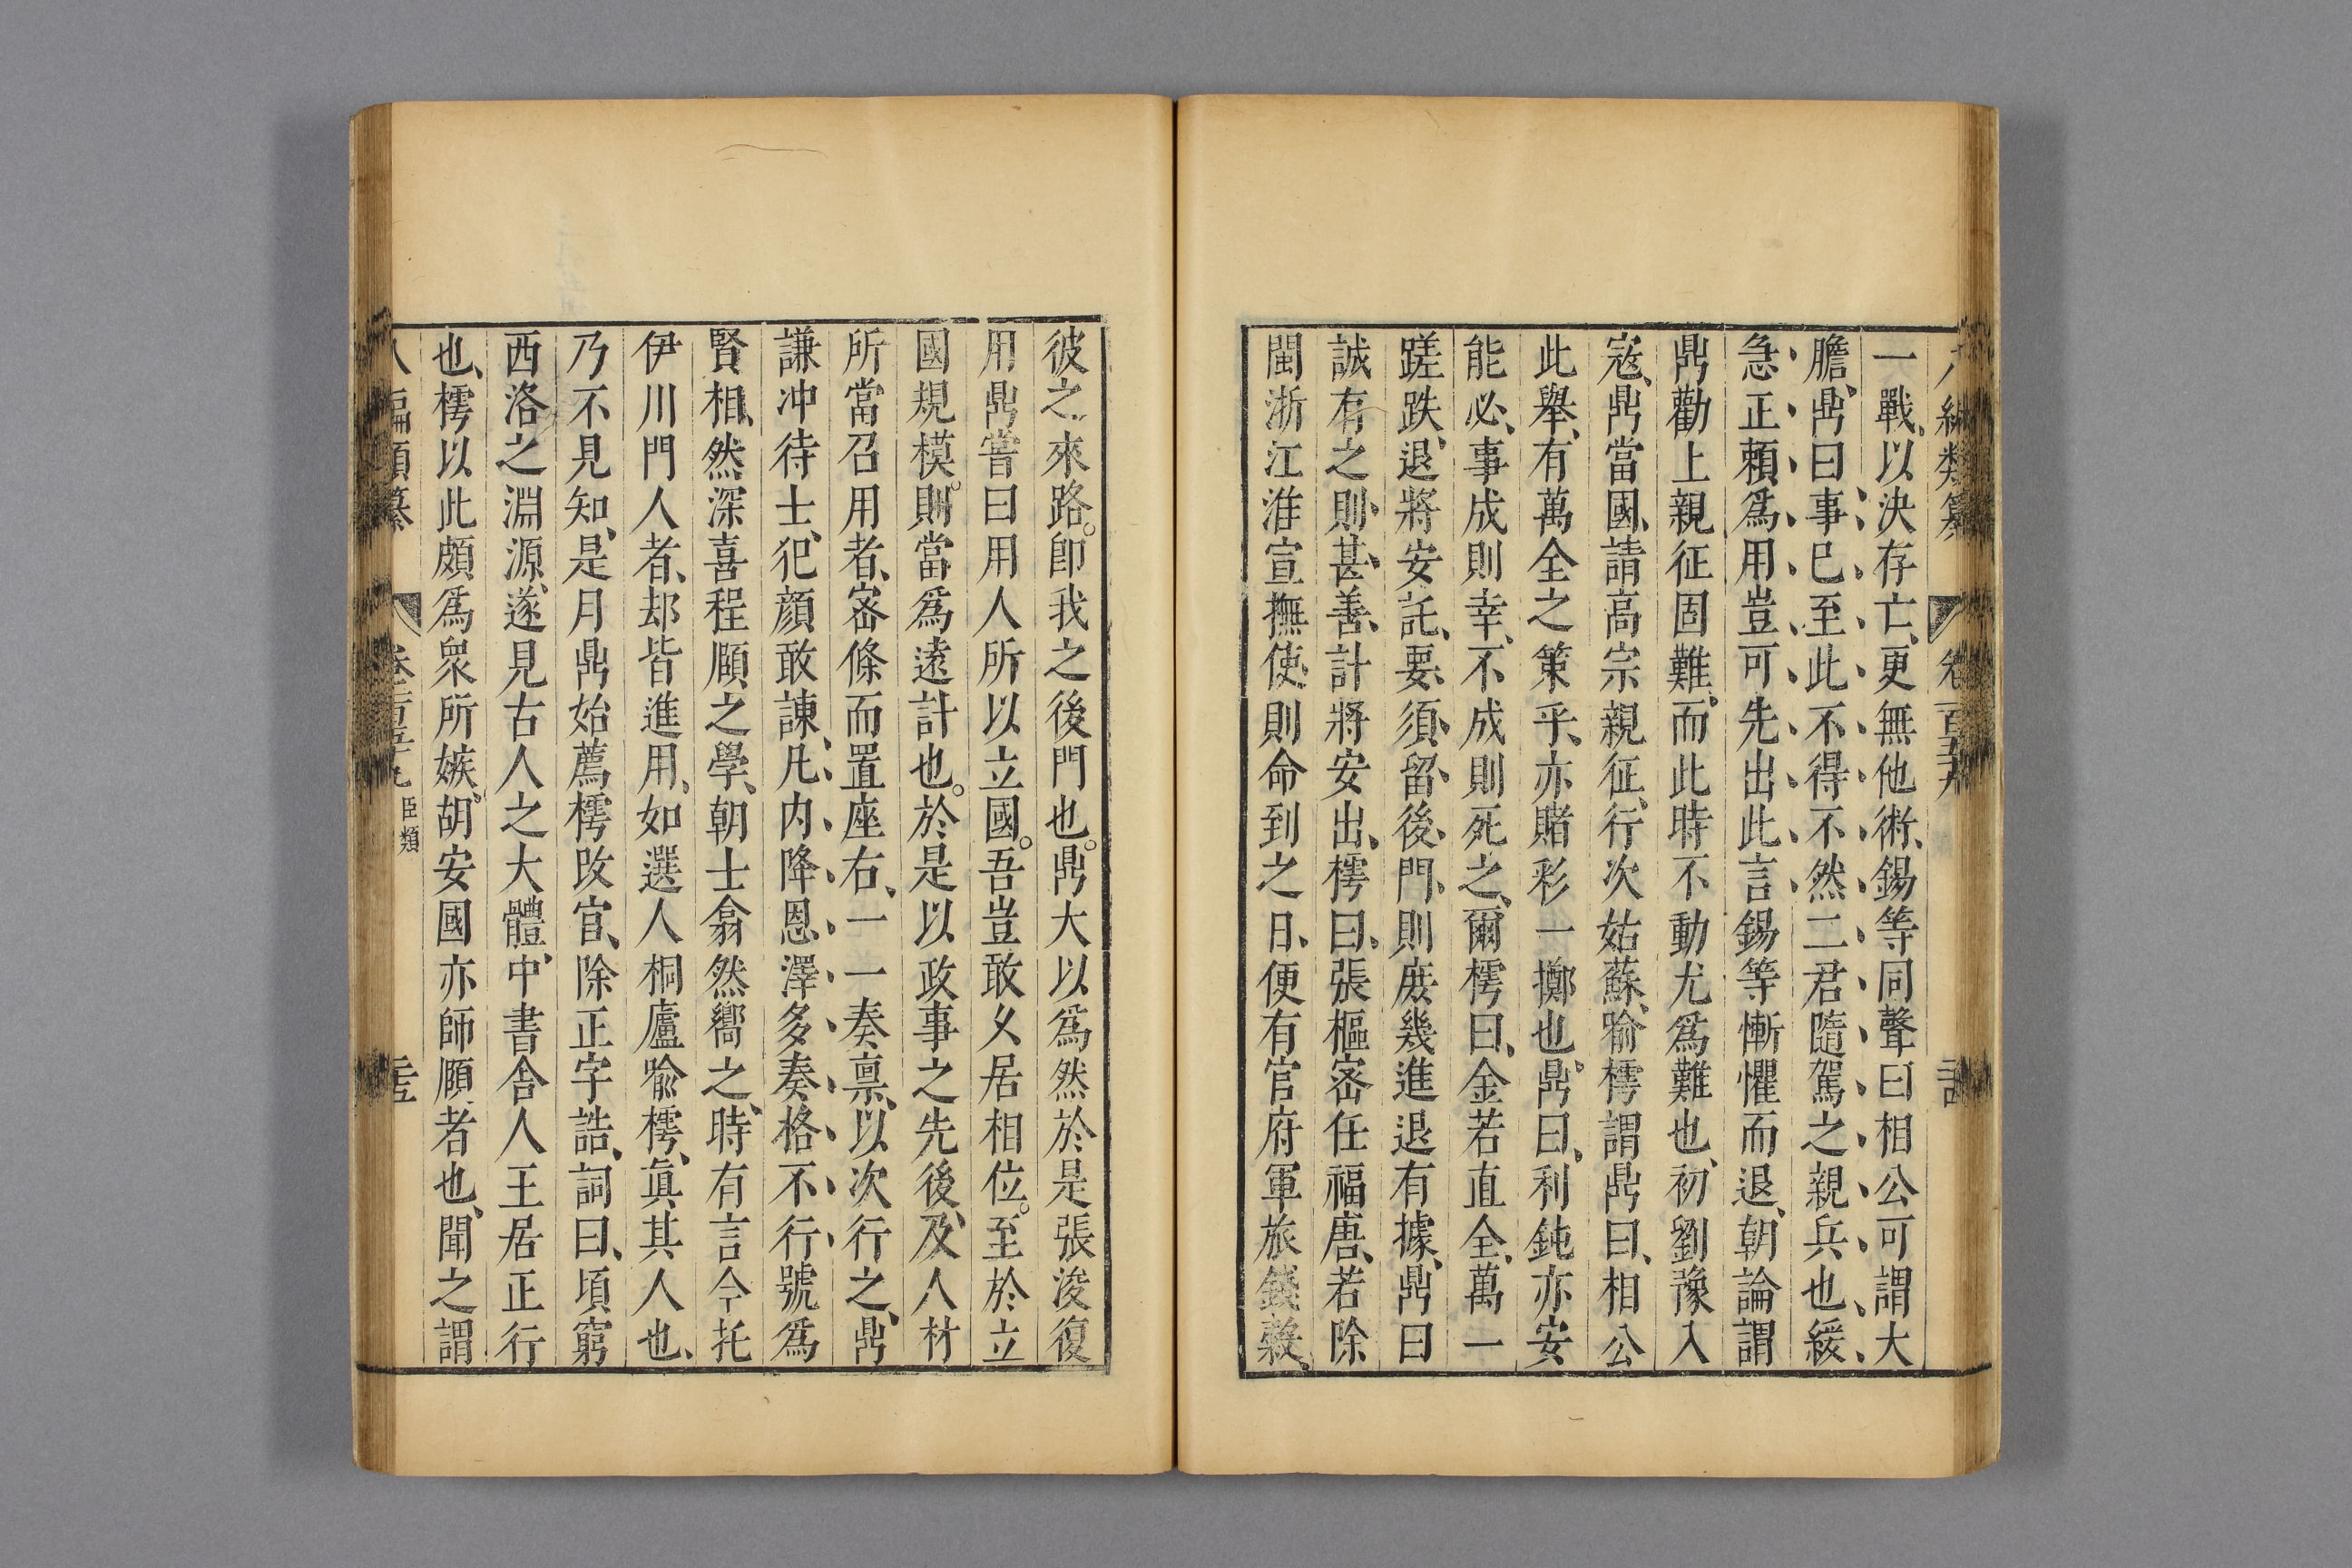 一戰、以決存亡、更無他術、錫等同聲曰相公可謂大
膽、鼎曰事已至此不得不然二君隨駕之親兵也緩
急正賴爲用豈可先出此言錫等慚懼而退、朝論謂
鼎勸上親征固難。而此時不動尤爲難也、初劉豫入
寇、鼎當國、請高宗親征、行次姑蘇、喻樗謂鼎曰、相公
此舉、有萬全之策乎、亦賭彩一擲也。鼎曰、利鈍亦安
能必、事成則幸、不成則死之、爾樗曰、金若直全、萬一
蹉跌、退將安託、要須留後門、則庶幾進退有據、鼎曰
誠有之則甚善、計將安出、樗曰、張樞密任福唐、若除
閩浙江淮宣撫使、則命到之日、便有官府軍旅錢穀、
彼之來路。卽我之後門也。鼎大以爲然於是張浚復
用鼎嘗曰用人所以立國。吾豈敢乆居相位。至於立
國規模。則當爲遠計也。於是以政事之先後、及人材
所當召用者、密條而置座右、一一奏禀、以次行之、鼎
謙冲待士、犯顏敢諫、凡内降恩澤多奏格不行、號爲
賢相、然深喜程頤之學、朝士翕然嚮之、時有言今托
伊川門人者、却皆進用、如選人桐廬喻樗、眞其人也、
乃不見知、是月鼎始薦樗改官、除正字誥、詞曰、頃窮
西洛之淵源、遂見古人之大體、中書舍人王居正行
也、樗以此頗爲衆所嫉、胡安國亦師頤者也、聞之謂
臣類